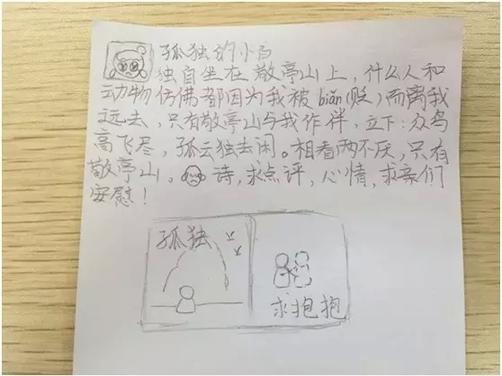 孤独的小白
独自坐在敬亭山上，什么人和
动物仿佛都因为我被biǎn(贬)而离我
远去，只有敬亭山与我作伴，立下：众鸟
高飞尽，孤云独去闲。相看两不厌，只有
敬亭山。诗，求点评，心情，求亲们
安慰！
孤独
求抱抱